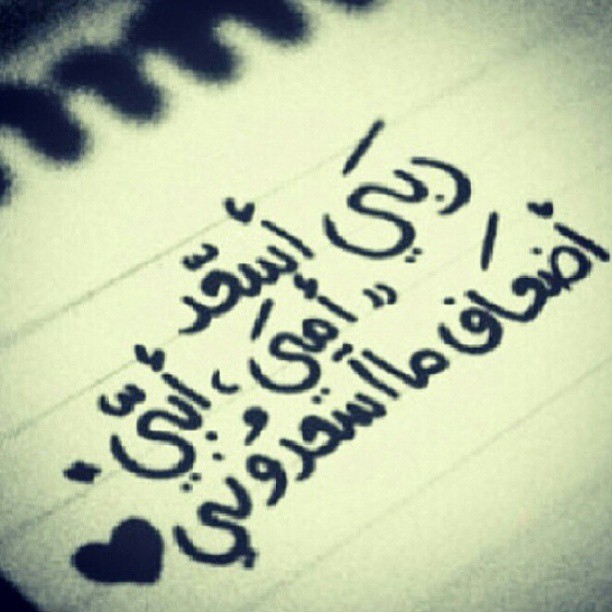 ربي أسعد
" أمي ، أبي .
أضعاف ما أسعدوني